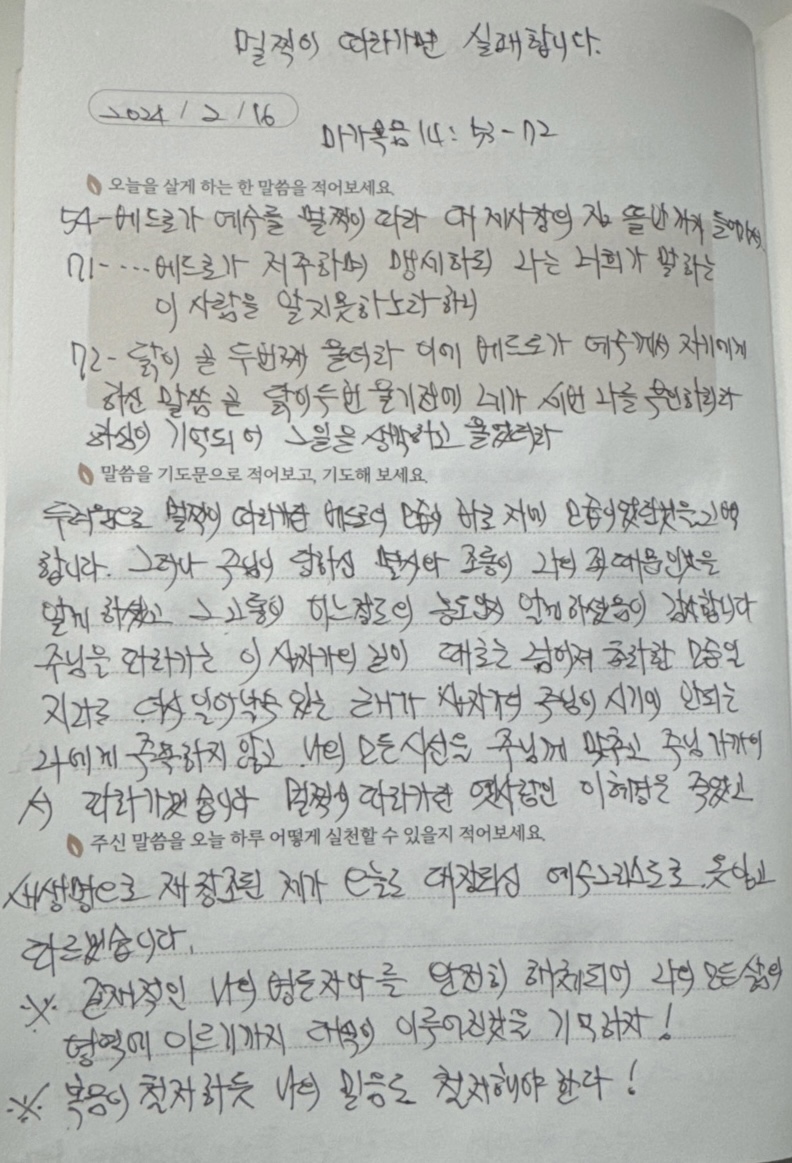 멀찍이 따라가면 실패합니다.
2024 / 2 / 16
마가복음 14 : 53 - 72
오늘을 살게 하는 한 말씀을 적어보세요.
54 - 베드로가 예수를 멀찍이 따라 대제사장의 집 뜰안까지 들어가서
71 - ... 베드로가 저주하며 맹세하되 나는 너희가 말하는
이 사람을 알지 못하노라 하니
72 - 닭이 곧 두번째 울더라 이에 베드로가 예수께서 자기에게
하신 말씀 곧 닭이 두번 울기전에 네가 세번 나를 부인하리라
하심이 기억되어 그 일을 생각하고 울었더라
말씀을 기도문으로 적어보고, 기도해 보세요.
두려움으로 멀찍이 따라가던 베드로의 모습이 바로 저의 모습이었던것을 고백
합니다. 그러나 주님이 당하신 멸시와 조롱이 나의 죄 때문인것을
알게 하셨고 그 고통이 어느정도의 농도인지 알게하셨음이 감사합니다
주님을 따라가는 이 십자가의 길이 때로는 넘어져 초라한 모습일
지라도 다시 일어날수 있는 근거가 십자가의 주님이시기에 안되는
나에게 주목하지 않고 나의 모든시선을 주님께 맞추고 주님 가까이
서 따라가겠습니다 멀찍이 따라가던 옛사람인 이혜정은 죽었고
주신 말씀을 오늘 하루 어떻게 실천할 수 있을지 적어보세요.
새생명으로 재창조된 제가 오늘도 대장되신 예수그리스도로 옷입고
따르겠습니다.
※ 존재적인 나의 병든자아를 완전히 해체되어 나의 모든 삶의
영역에 이르기까지 대속이 이루어진것을 기억하자!
※ 복음이 철저하듯 나의 믿음도 철저해야 한다!